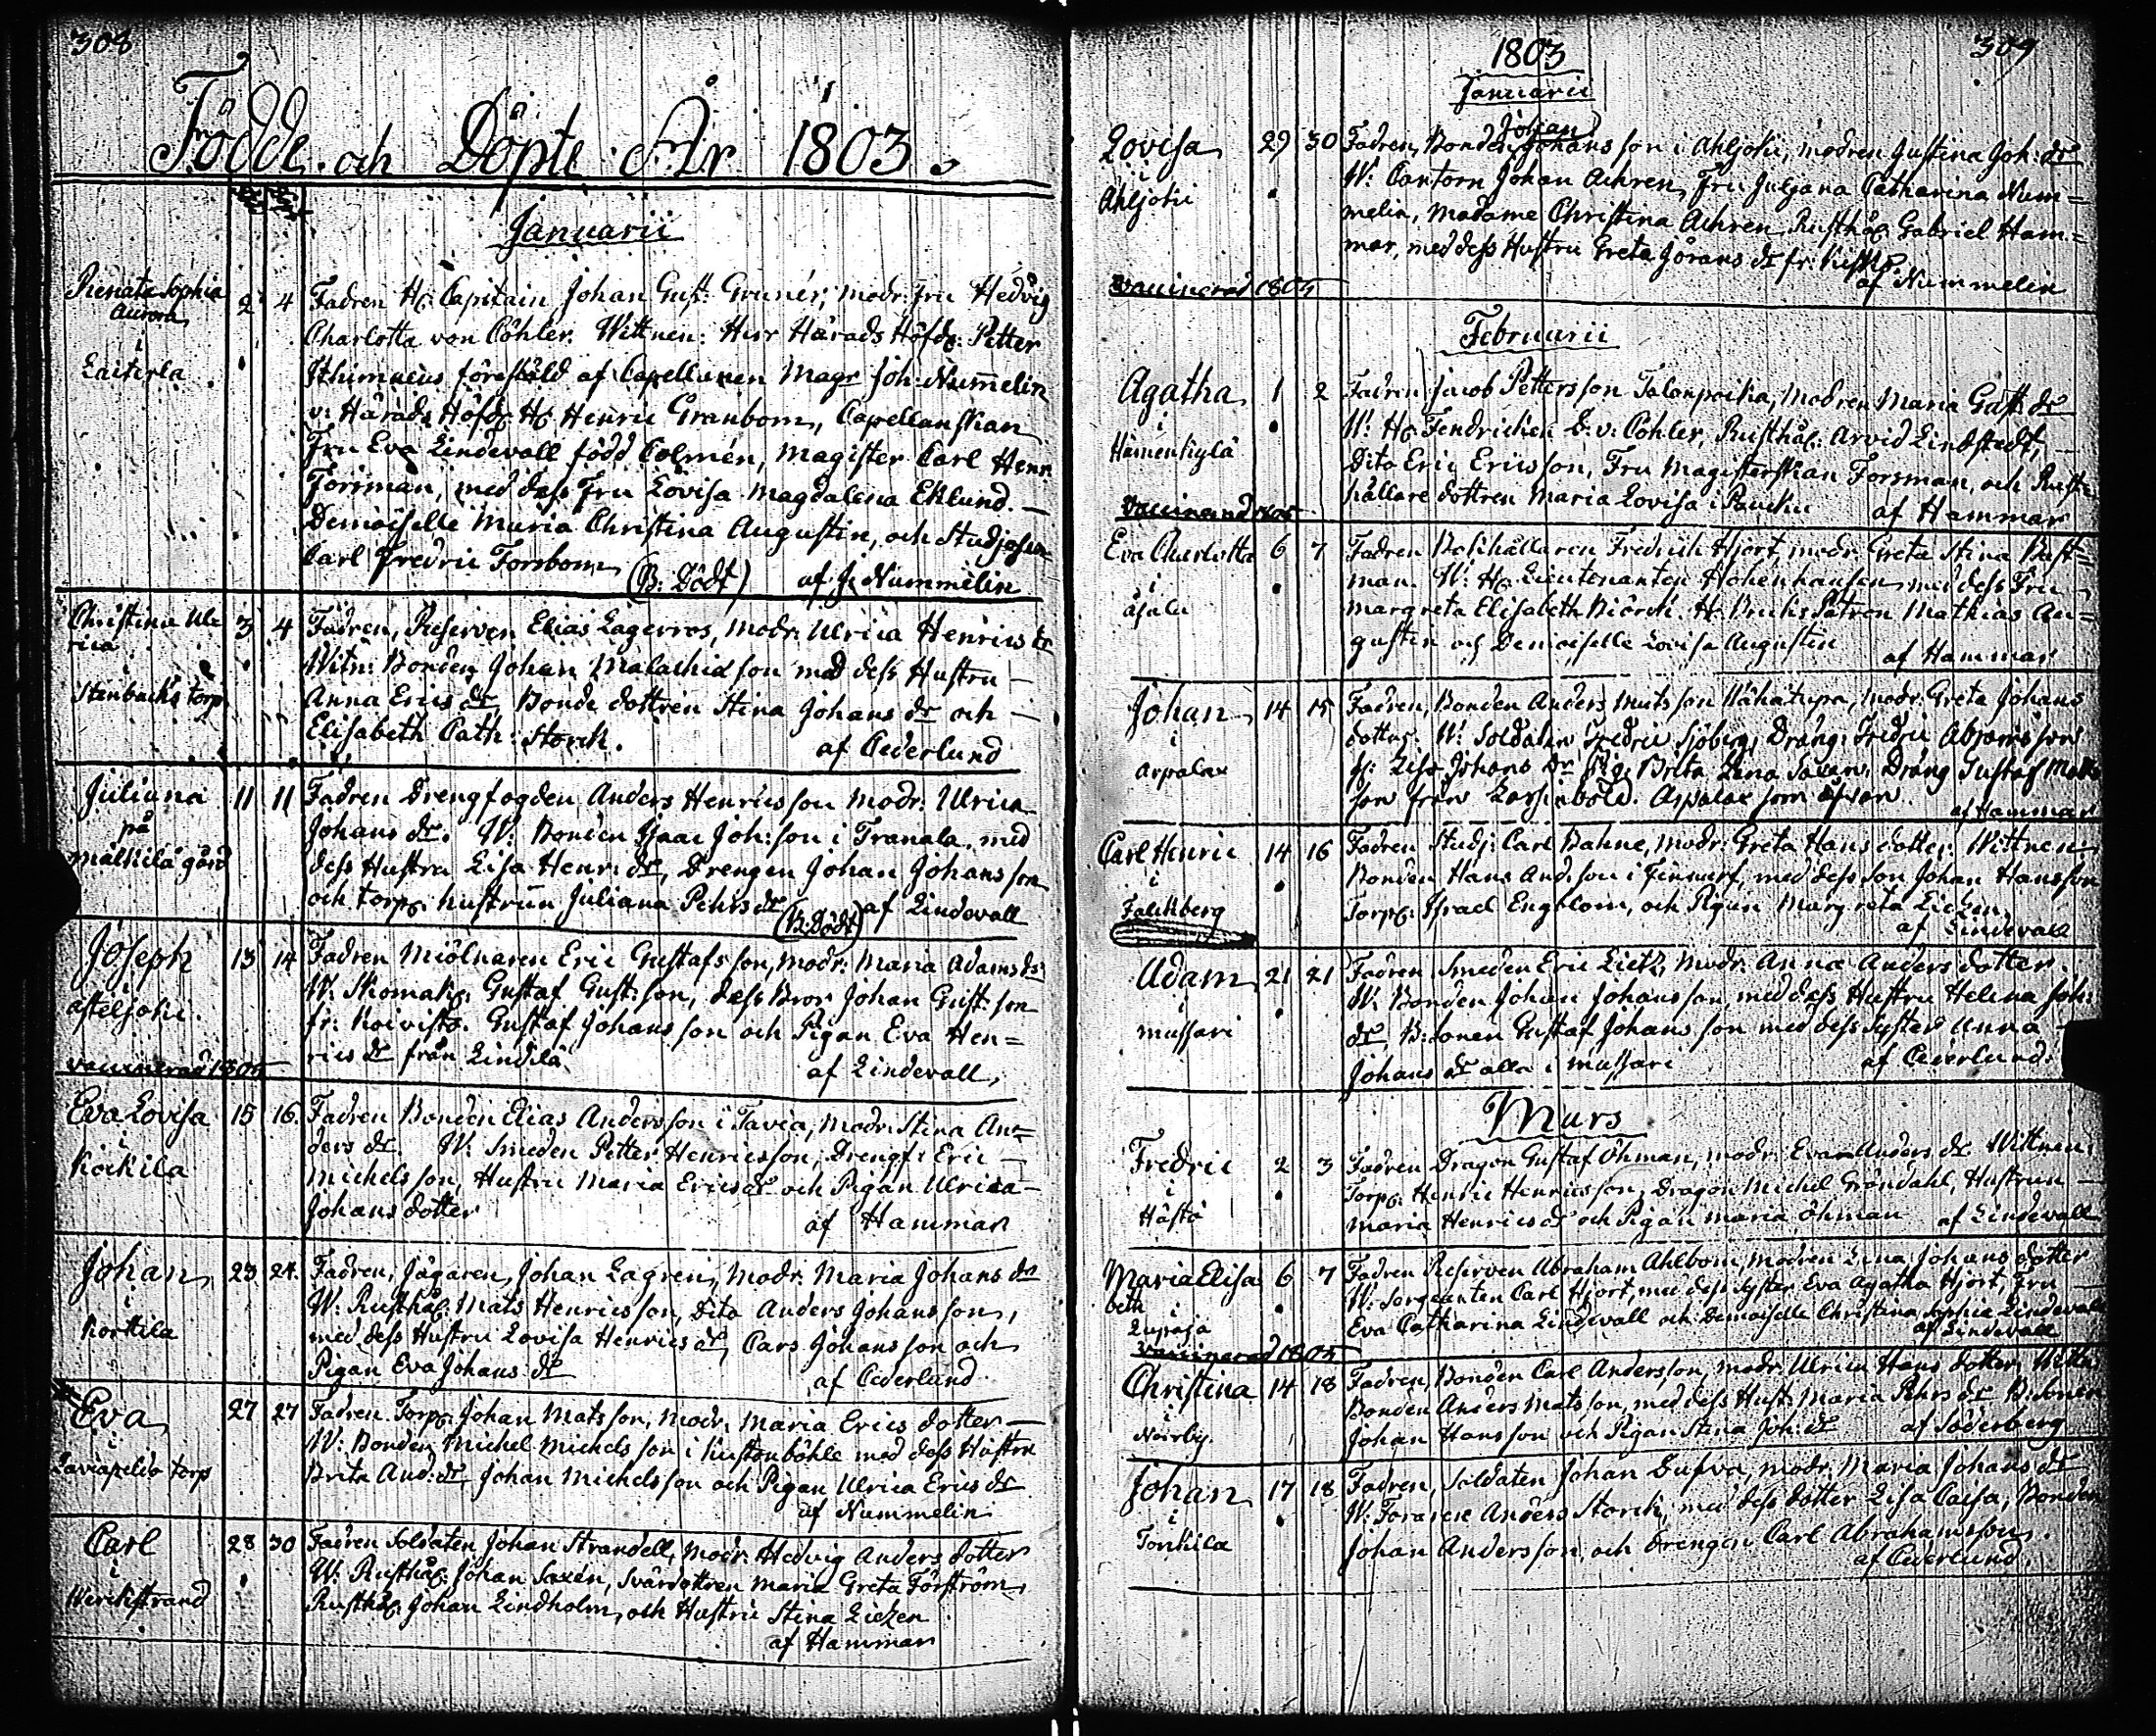 308
Födde och Döpte År 1803.
Januarii
Renata Sophia
Aurora
i
Laitila
2 4 Fadren Hr Capitain Johan Gust: Gruner, modr: Fru Hedvig
Charlotta von Cöhler. Wittnen: Herr Härads Höfd: Petter
Ithimæus föreställd af Capellanen Magr Joh: Nummelin
v: Härads Höfd: Hr Henric Granbom, Capellanskan
Fru Eva Lindevall född Colmén, Magister Carl Henr:
Forsman, med dess Fru Lovisa Magdalena Eklund. —
Demoiselle Maria Christina Augustin, och Studiosen
Carl Fredric Forsbom (B: Dödt) af J: Nummelin
Christina Ul-
rica
i
Stenbacks torp
3 4 Fadren, Reserven Elias Lagerros, modr: Ulrica Henrics dr
Witn: Bonden Johan Malachiæ son med dess Hustru —
Anna Erics dr, Bonde dottren Stina Johans dr och —
Elisabeth Cath: Storck. af Cederlund
Juliana
på
Målkilä gård
11 11 Fadren Drengfogden Anders Henrics son modr: Ulrica
Johans dr. W: Bonden Isaac Joh: son i Tranala, med
dess Hustru Lisa Henr: dr, Drengen Johan Johans son
och torp: hustrun Juliana Pehrs dr (B: Dödt) af Lindevall
Joseph
i
asteljoki
vaccinerad 1805
13 14 Fadren Miölnaren Eric Gustafs son, modr: Maria Adams dr
W: Skomak: Gustaf Gust: son, dess Bror Johan Gust: son
fr: Koivisto. Gustaf Johans son och Pigan Eva Hen=
rics dr från Lindilä af Lindevall,
Eva Lovisa
i
Köckila
15 16. Fadren Bonden Elias Anders son i Tavia, modr: Stina An=
ders dr. W: Smeden Petter Henricsson, Drengf: Eric —
Michels son, Hustru Maria Erics dr och Pigan Ulrica —
Johans dotter af Hammar
Johan
i
Korttila
23 24. Fadren, Jägaren, Johan Lagren, modr: Maria Johans dr
W: Rusthål: Mats Henrics son, Dito Anders Johans son,
med dess Hustru Lovisa Henrics dr, Cars Johans son och
Pigan Eva Johans dr af Cederlund
Eva
i
torp
27 27 Fadren Torp: Johan Mats son, modr: Maria Erics dotter —
W: Bonden Michel Michels son i Kustonböhle med dess Hustru
Brita And: dr, Johan Michels son och Pigan Ulrica Erics dr
af Nummelin
Carl
i
Werckstrand
28 30 Fadren Soldaten Johan Strandell, modr: Hedvig Anders dotter
W: Rusthål: Johan Saxén, Svärdottren Maria Greta Förström,
Rusthål: Johan Lindholm, och Hustru Stina Lietzen
af Hammar
1803 309
Januarii
Lovisa
i
Ahljoki
vaccinerad 1805
Johan
29 30 Fadren, Bonden Johans son i Ahljoki, modren Justina Joh: dr
W: Cantorn Johan Achren, Fru Juljana Catharina Num=
melin, Madame Christina Achren, Rusthål: Gabriel Ham=
mar, med dess Hustru Greta Görans dr fr:
af Nummelin
Februarii
Agatha
i
Hämenkylä
vaccinerad 1805
1 2 Fadren Jacob Petters son Talonpoika, modren Maria Gust: dr
W: Hr Fendricken D: v: Cöhler, Rusthål: Arvid Lindstedt, —
Dito Eric Erics son, Fru Magisterskan Forsman, och Rust=
hållare dottren Maria Lovisa i Paucku af Hammar
Eva Charlotta
i
äjälä
6 7 Fadren Bokhållaren Fredrich Hjort, modr: Greta Stina Bust=
man. W: Hr Lieutenanten Hohenhausen med dess Fru
Margreta Elisabeth Biörck. Hr Bruks Patron Mathias Au=
gustin och Demoiselle Lovisa Augustin af Hammar
Johan
i
Arpalax
14 15 Fadren, Bonden Anders Mats son Vähätupa, modr: Greta Johans
dotter. W: Soldaten Fredric Sjöberg, Dräng: Fredric Abrams son
H: Lisa Johans dr Pig: Brita Lena Saxen, Dräng Gustaf Mats
son från Lassinböle. Arpalax som ofvan af Hammar
Carl Henric
i
Falckberg
14 16 Fadren Studj: Carl Bahne, modr: Greta Hans dotter. Wittnen
Bonden Hans And: son i Finnurf, med dess Son Johan Hansson
Torp: Israel Engblom, och Pigan Margreta Lietzen,
af Lindevall
Adam
i
Mussari
21 21 Fadren Smeden Eric Lietz, Modr: Anna Anders dotter
W: Bonden Johan Johans son, med dess Hustru Helena Joh:
dr, B: Sonen Gustaf Johans son med dess Syster Anna —
Johans dr alla i Mussari af Cederlund.
Mars
Fredric
i
Håsta
2 3 Fadren Dragon Gustaf Öhman, modr: Eva Anders dr Wittnen
Torp: Henric Henrics son, Dragon Michel Gröndahl, Hustrun —
Maria Henrics dr och Pigan Maria Öhman af Lindevall
Maria Elisa
beth
i
Lupaja
vaccinerad 1805
6 7 Fadren Reserven Abraham Ahlbom, modren Lena Johans dotter
W: Sergeanten Carl Hjort, med dess Syster Eva Agatha Hjort, Fru —
Eva Catharina Lindevall och Demoiselle Christina Sophia Lindevall
af Lindevall
Christina
i
Norrby
14 18 Fadren, Bonden Carl Anders son, modr: Ulrica Hans dotter, Wittn:
Bonden Anders Mats son, med dess Hust: Maria Pehrs dr B: Sonen
Johan Hans son och Pigan Stina Joh: dr af Söderberg
Johan
i
Tonkila
17 18 Fadren, Soldaten Johan Dufva, modr: Maria Johans dr
W: Foraren Anders Storck, med dess dotter Lisa Caisa, Bonden
Johan Anders son, och Drengen Carl Abrahamsson.
af Cederlund